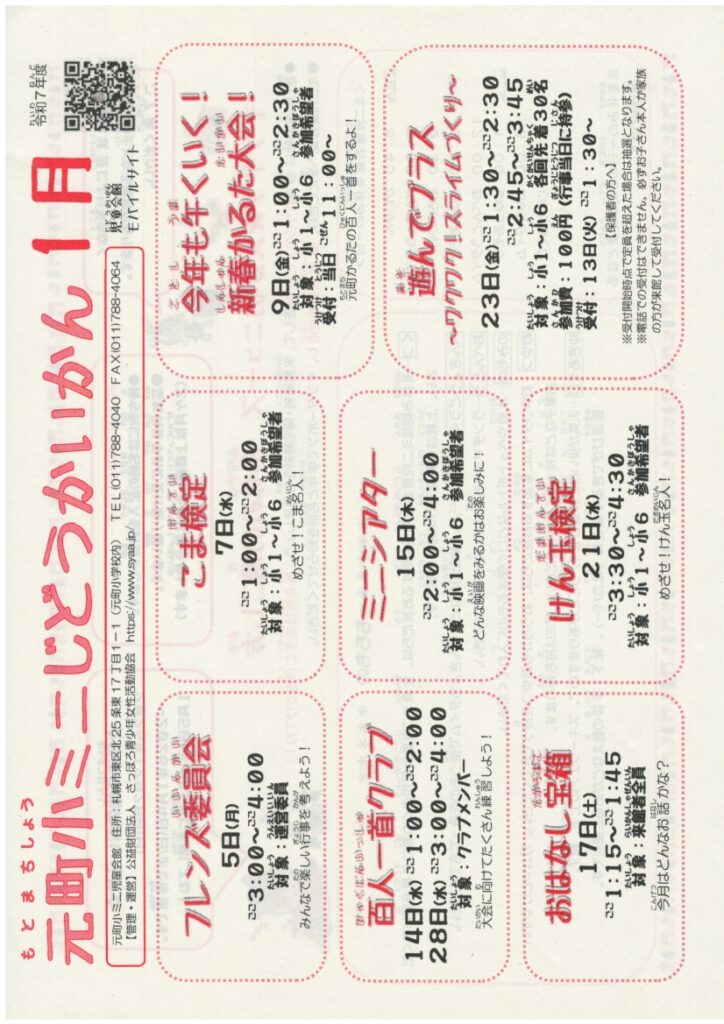 令和7年度
元町小ミニじどうかいかん 1月
児童会館
モバイルサイト
元町小ミニ児童会館 住所：札幌市東区北25条東17丁目1－1（元町小学校内） TEL(011)788-4040 FAX(011)788-4064
【管理・運営】公益財団法人 さっぽろ青少年女性活動協会 https://www.syaa.jp/
フレンズ委員会
5日(月)
ごご3:00～ごご4:00
対象：運営委員
みんなで楽しい行事を考えよう！
こま検定
7日(水)
ごご1:00～ごご2:00
対象：小1～小6 参加希望者
めざせ！こま名人！
今年も午くいく！
新春かるた大会！
9日(金)ごご1:00～ごご2:30
対象：小1～小6 参加希望者
受付：当日 ごぜん11:00～
元町かるたの百人一首をするよ！
百人一首クラブ
14日(水)ごご1:00～ごご2:00
28日(水)ごご3:00～ごご4:00
対象：クラブメンバー
大会に向けてたくさん練習しよう！
ミニシアター
15日(木)
ごご2:00～ごご4:00
対象：小1～小6 参加希望者
どんな映画をみるかはお楽しみに！
遊んでプラス
～ワクワク！スライムづくり～
23日(金)ごご1:30～ごご2:30
ごご2:45～ごご3:45
対象：小1～小6 各回先着30名
参加費：100円（行事当日に持参）
受付：13日(火)ごご1:30～
【保護者の方へ】
※受付開始時点で定員を超えた場合は抽選となります。
※電話での受付はできません。必ずお子さん本人か家族
の方が来館して受付してください。
おはなし宝箱
17日(土)
ごご1:15～ごご1:45
対象：来館者全員
今月はどんなお話かな？
けん玉検定
21日(水)
ごご3:30～ごご4:30
対象：小1～小6 参加希望者
めざせ！けん玉名人！